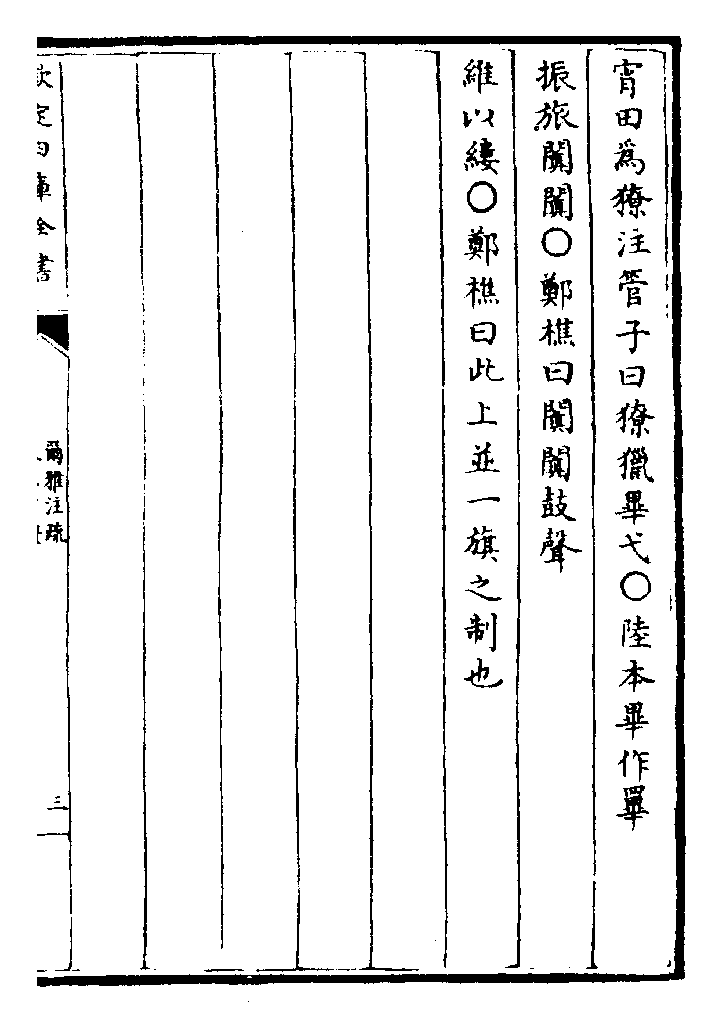 宵田為獠注管子曰獠獵畢弋〇陸本畢作罼
振旅闐闐〇鄭樵曰闐闐鼓聲
維以縷〇鄭樵曰此上並一旗之制也
欽定四庫全書
爾雅注疏
三